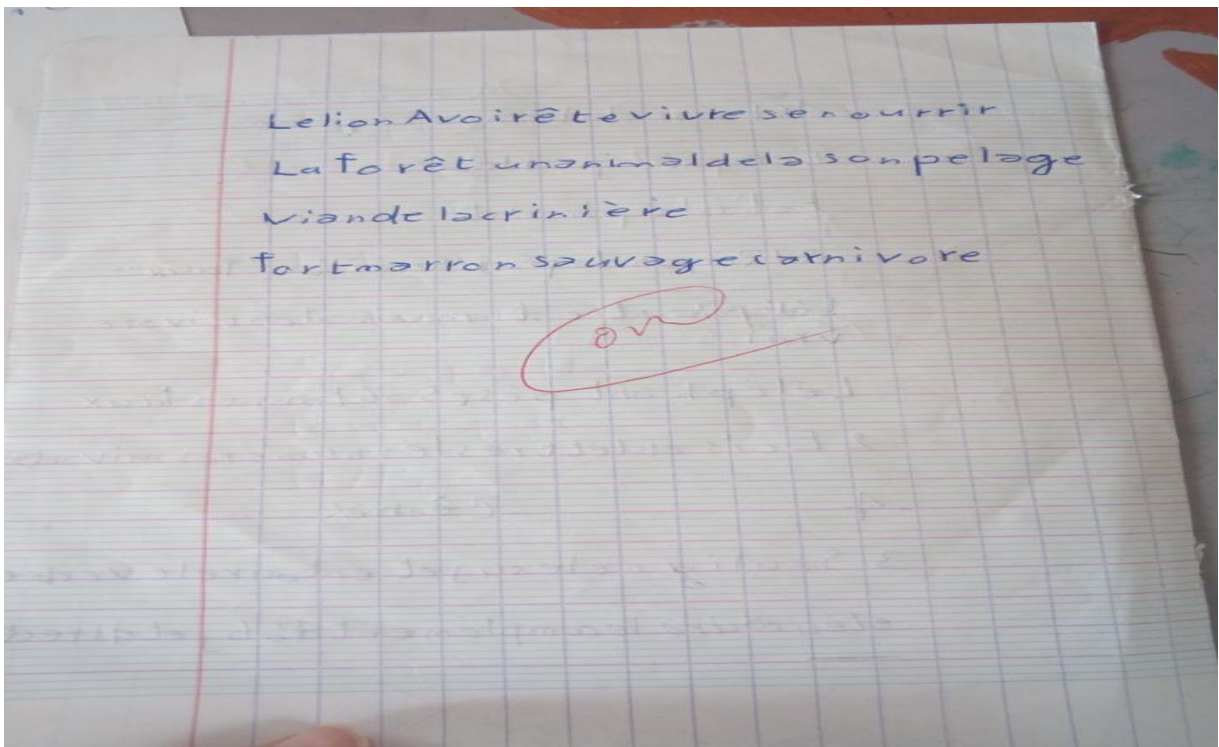 Le lion Avoir ête vivre se nourrir
La forêt un animal de la son pelage
viande la crinière
fort marron sauvage carnivore